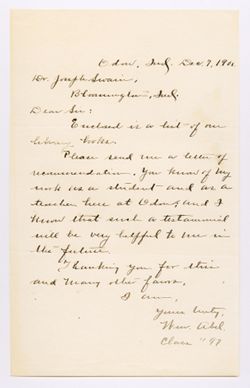 Odon, Ind., Dec. 7, 190
Dr. Joseph Swain,
Bloomington, Ind.
Dear Sir:
Enclosed is a list of our
library books.
Please send me a letter of
recommendation. You know of my
work as a student and as a
teacher here at Odon, and I
know that such a testimonial
will be very helpful to me in
the future.
Thanking you for this
and many other favors,
I am,
Yours truly,
Wm. Abel.
Class "97